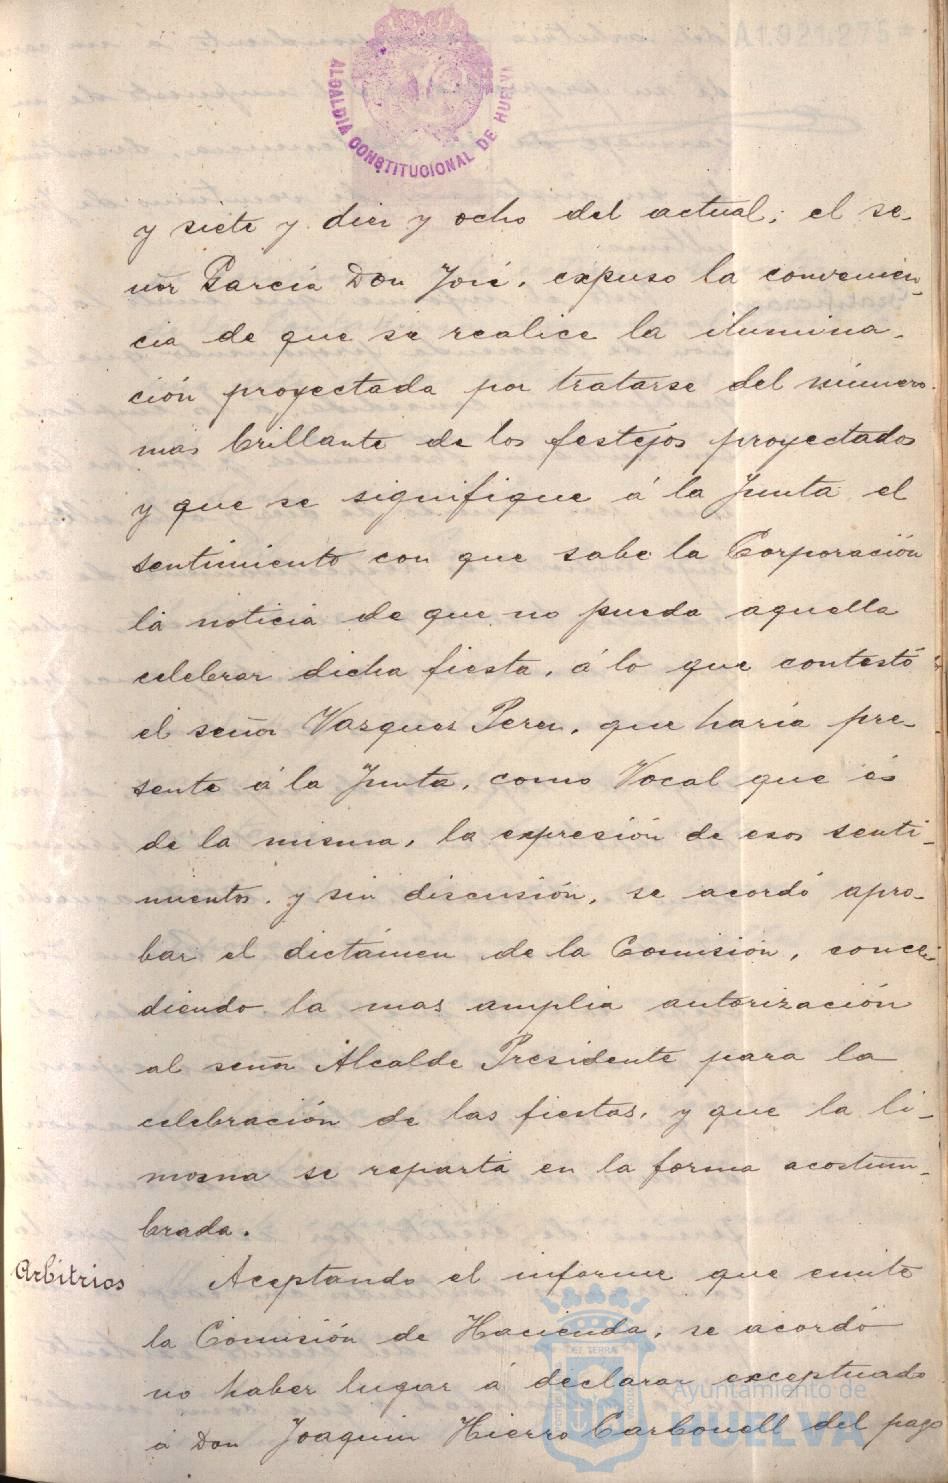 ALCALDIA CONSTITUCIONAL DE HUELVA
A1.921.275
y siete y diez y ocho del actual; el se-
ñor García Don José, expuso la convenien-
cia de que se realice la ilumina-
ción proyectada por tratarse del número
mas brillante de los festejos proyectados
y que se signifique á la Junta el
sentimiento con que sabe la Corporación
la noticia de que no pueda aquella
celebrar dicha fiesta, á lo que contestó
el señor Vazquez Perez, que haria pre-
sente á la Junta, como Vocal que és
de la misma, la expresión de esos senti-
mientos. y sin discusión, se acordó apro-
bar el dictámen de la Comisión, conce-
diendo la mas amplia autorización
al señor Alcalde Presidente para la
celebración de las fiestas, y que la li-
mosna se reparta en la forma acostum-
brada.
Arbitrios
Aceptando el informe que emite
la Comisión de Hacienda, se acordó
no haber lugar á declarar exceptuado
á Don Joaquin Hierro Carbonell del pago
Ayuntamiento de
HUELVA